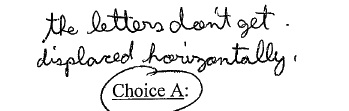 the letters don't get .
displaced horizontally.
Choice A: